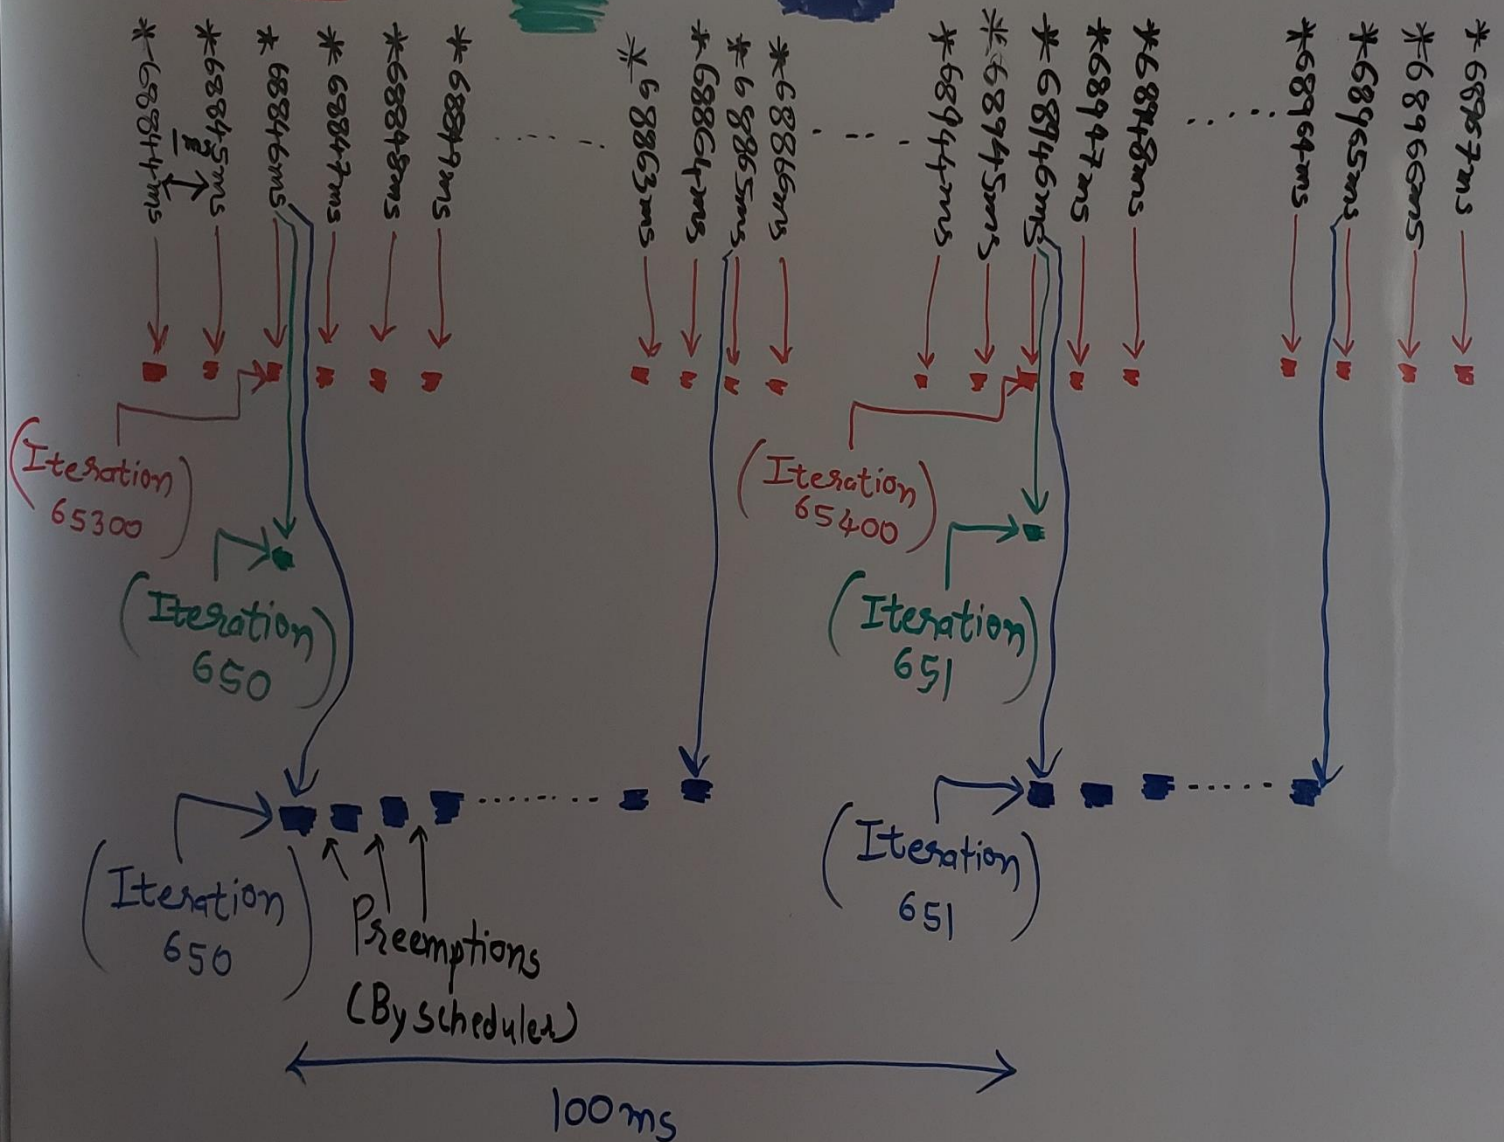 *68844ms
*68845ms
*68846ms
*68847ms
*68848ms
*68849ms
*68863ms
*68864ms
*68865ms
*68866ms
*68944ms
*68945ms
*68946ms
*68947ms
*68948ms
*68964ms
*68965ms
*68966ms
*68967ms
(Iteration
65300)
(Iteration
65400)
(Iteration
650)
(Iteration
651)
(Iteration
650)
(Iteration
651)
Preemptions
(By scheduler)
100ms